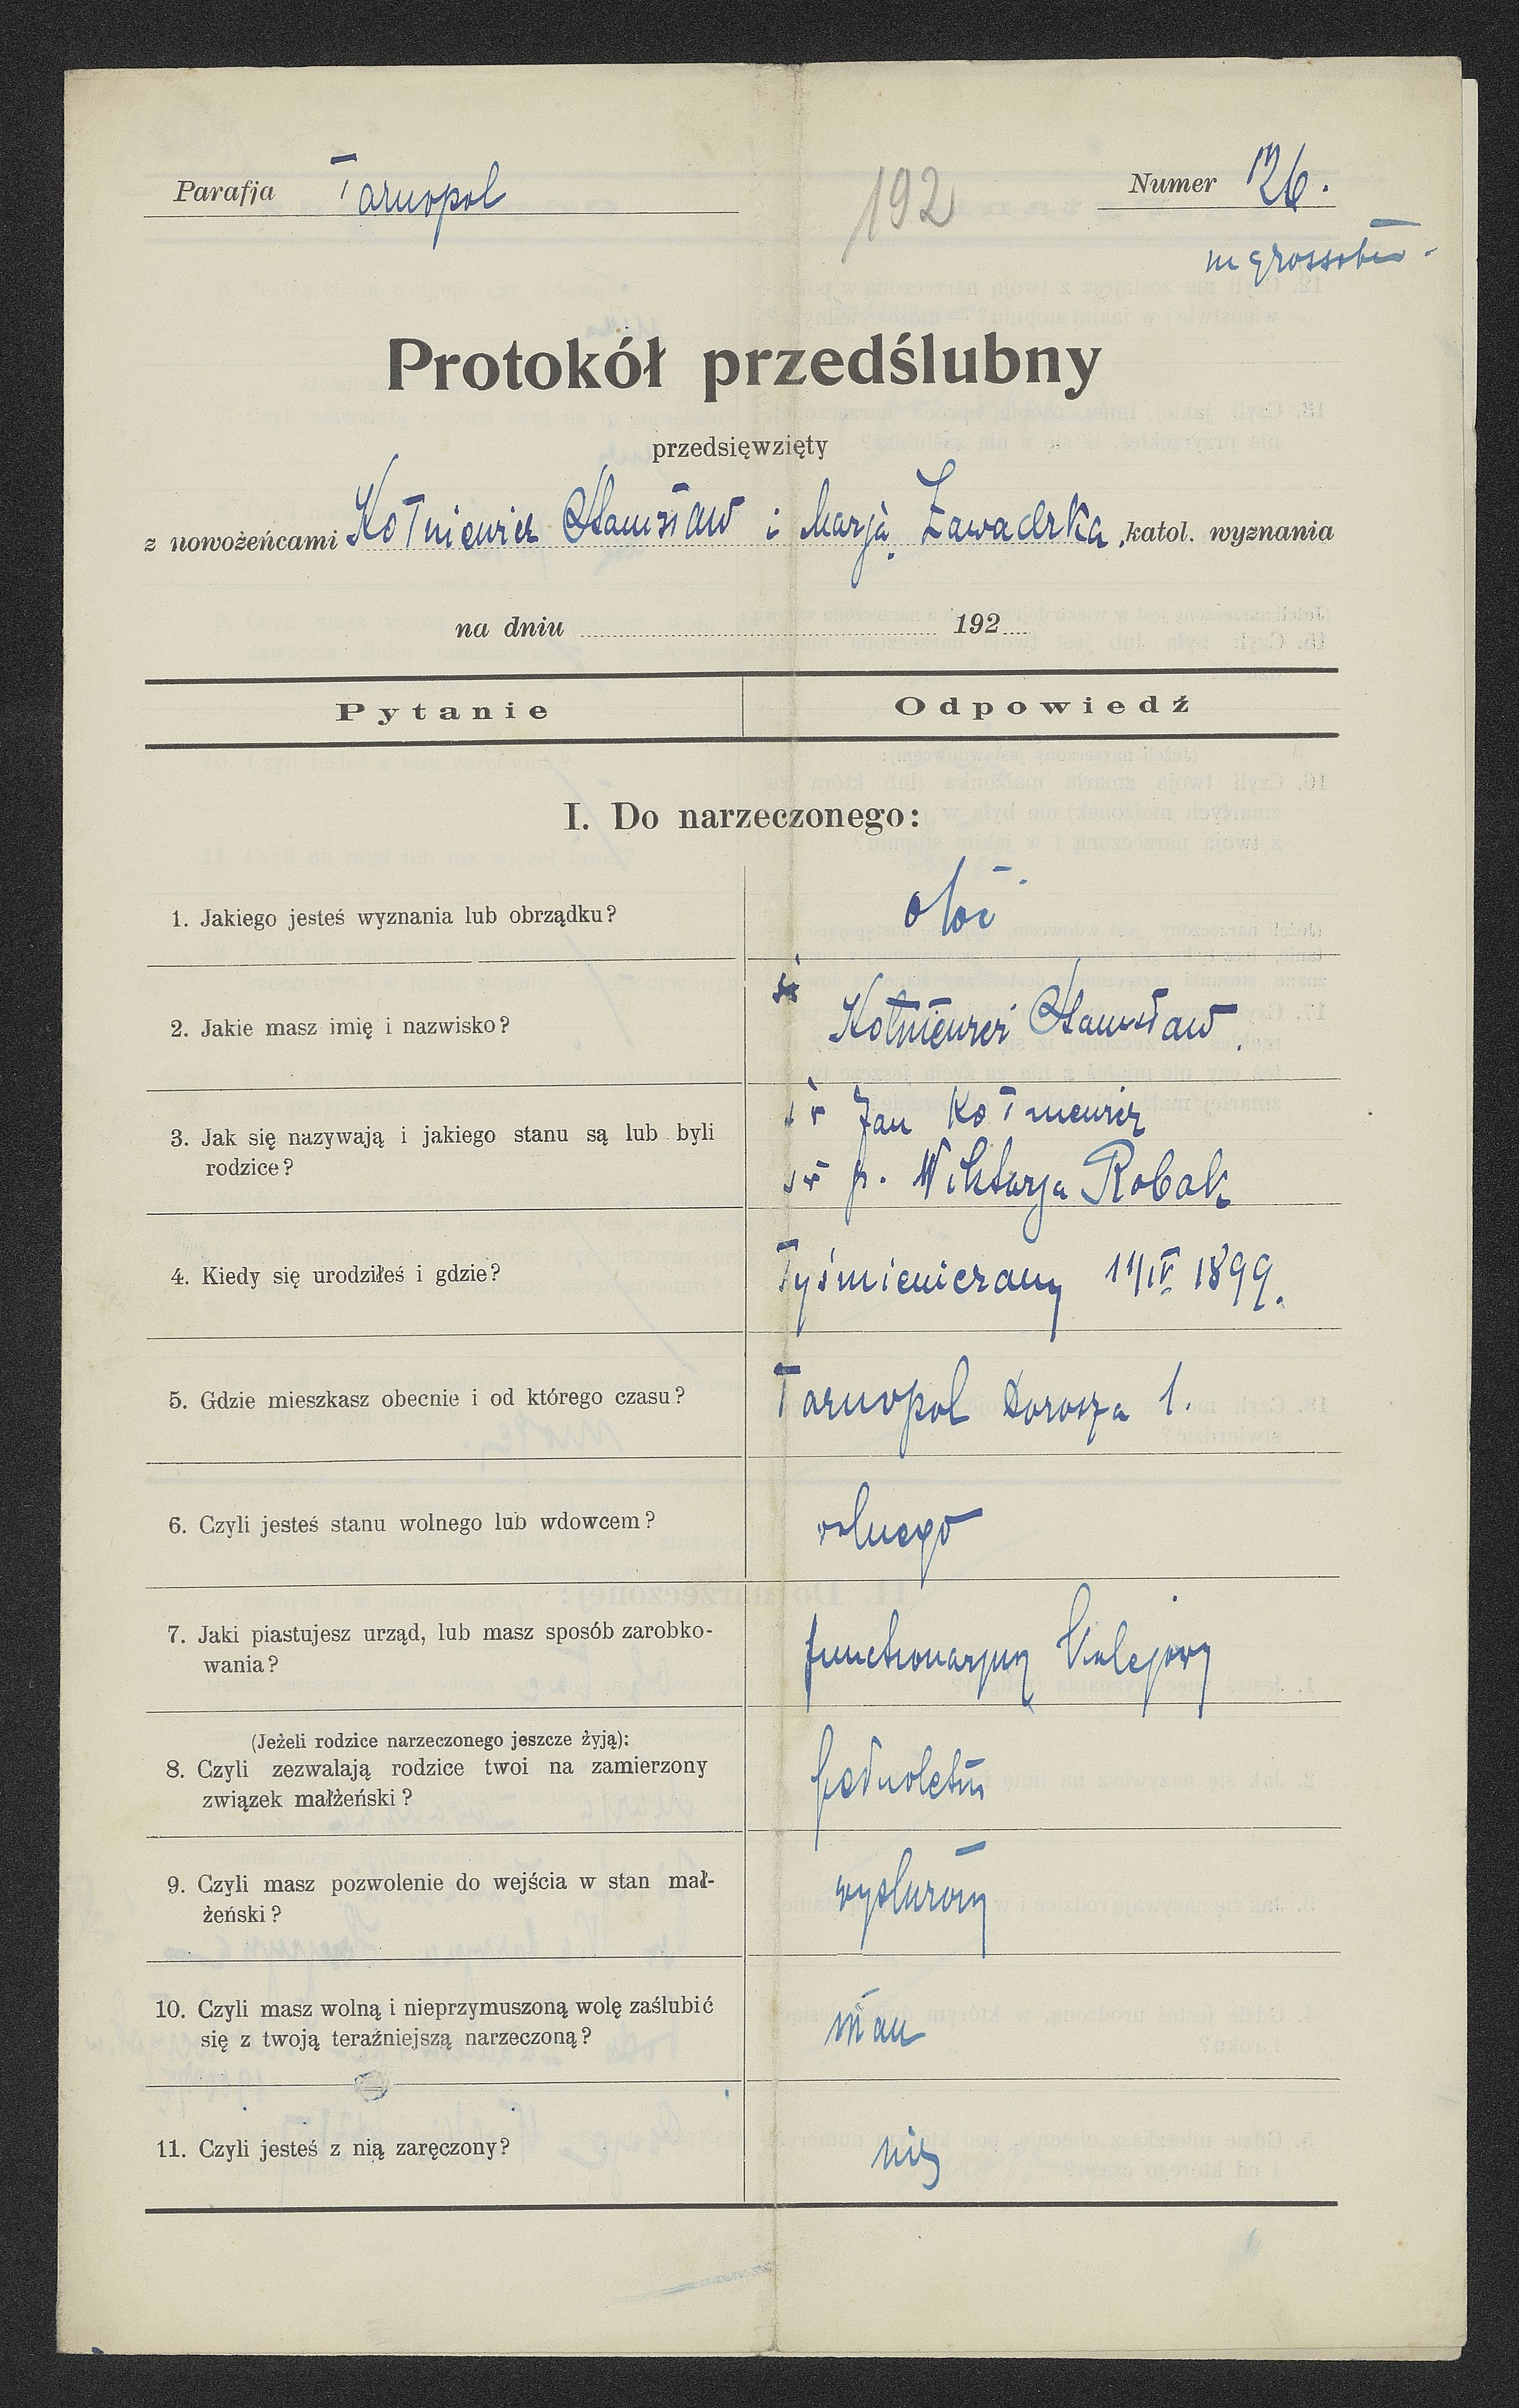 Parafja Tarnopol
192
Numer 126.
ingrossatum
Protokół przedślubny
przedsięwzięty
z nowożeńcami Kołniewicz Stanisław i Marja Zawadzka katol. wyznania
na dniu 192
Pytanie Odpowiedź
I. Do narzeczonego:
1. Jakiego jesteś wyznania lub obrządku?
2. Jakie masz imię i nazwisko? Stanisław
3. Jak się nazywają i jakiego stanu są lub byli Jan Kołniewicz
rodzice? Wiktorja Robak
4. Kiedy się urodziłeś i gdzie? Tyśmieniczany 11/IV 1899.
5. Gdzie mieszkasz obecnie i od którego czasu? Tarnopol 1.
6. Czyli jesteś stanu wolnego lub wdowcem? wolnego
7. Jaki piastujesz urząd, lub masz sposób zarobko- kolejowy
wania?
(Jeżeli rodzice narzeczonego jeszcze żyją):
8. Czyli zezwalają rodzice twoi na zamierzony
związek małżeński?
9. Czyli masz pozwolenie do wejścia w stan mał-
żeński?
10. Czyli masz wolną i nieprzymuszoną wolę zaślubić
się z twoją teraźniejszą narzeczoną? mau
11. Czyli jesteś z nią zaręczony?